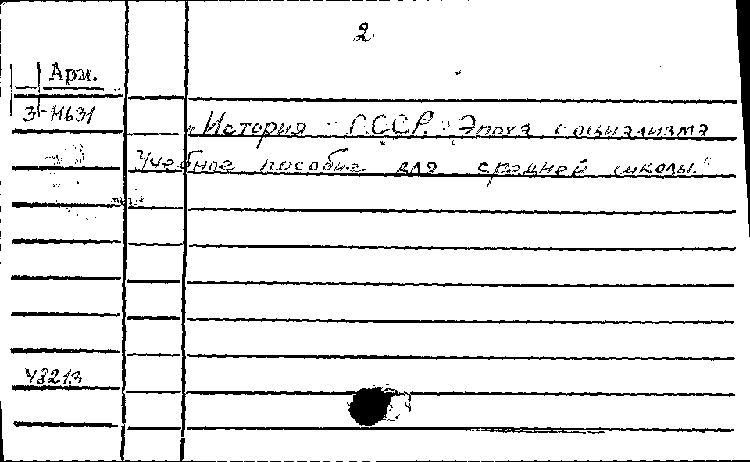 2
Арм.
3-4631
„История СССР. Эпоха социализма
Учебное пособие для средней школы."